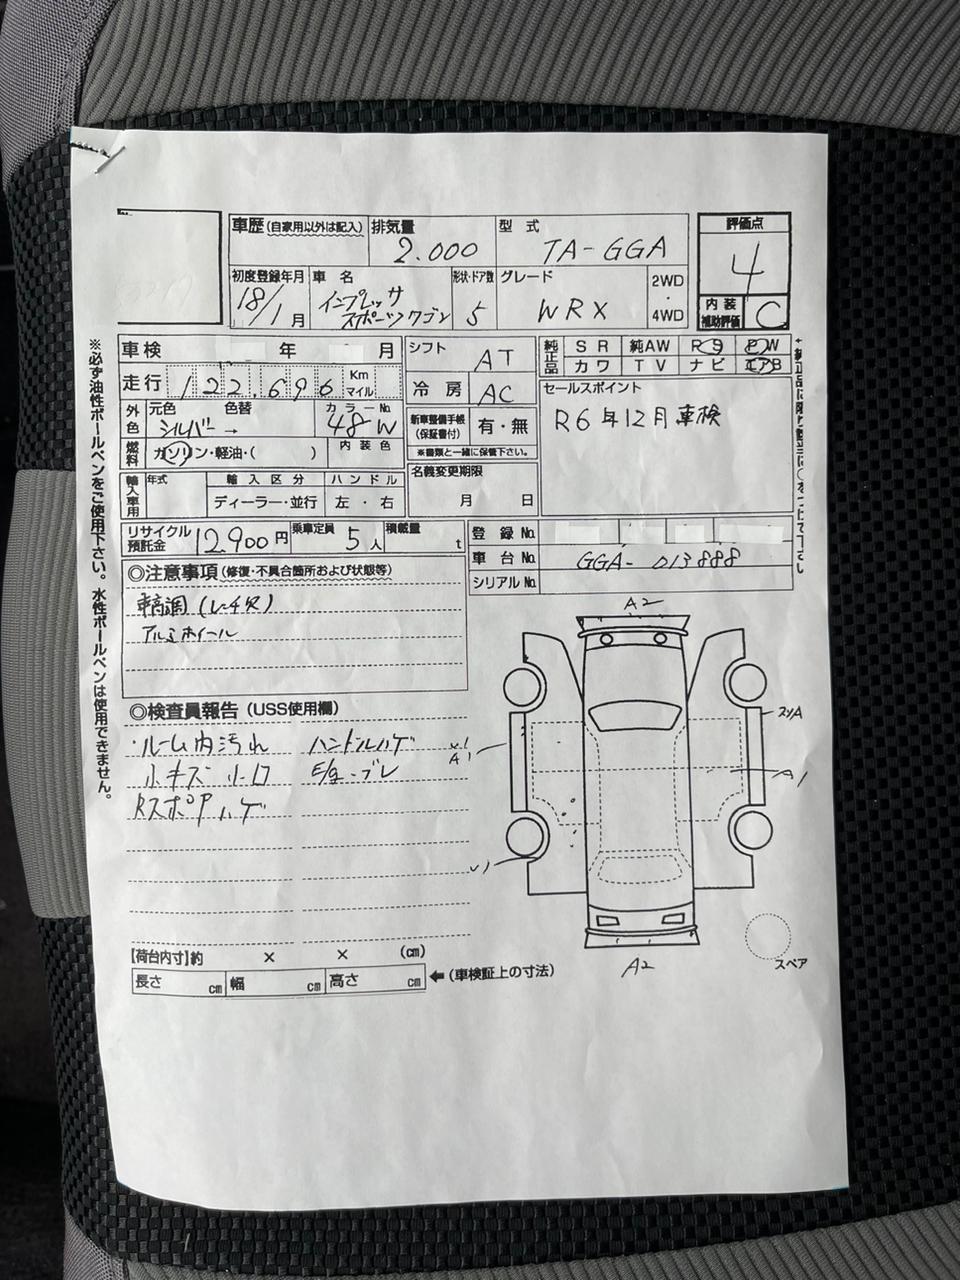 車歴 (自家用以外は記入) 排気量 2.000 型式 TA-GGA 評価点 4
初度登録年月 18/1月 車名 インプレッサ スポーツワゴン 形状・ドア数 5 グレード WRX 2WD・4WD 内装補助評価 C
車検 年 月 シフト AT 純正品 SR 純AW PS PW
走行 122,696 Km マイル 冷房 AC カワ TV ナビ エアB
外色 元色 シルバー 色替 → カラーNo. 48W 新車整備手帳(保証書付) 有・無 ※書類と一緒に保管下さい。 セールスポイント
R6年12月車検
燃料 ガソリン・軽油・( ) 内装色
輸入車用 年式 輸入区分 ディーラー・並行 ハンドル 左・右 名義変更期限 月 日
リサイクル預託金 12.900円 乗車定員 5人 積載量 t 登録No.
車台No. GGA-013888
シリアルNo.
◎注意事項 (修復・不具合箇所および状態等)
車高調(レーシヤ)
アルミホイール
◎検査員報告 (USS使用欄)
・ルーム内汚れ ハンドルハゲ
小キズ 小凹 E/g-ブレ
RスポPハゲ
【荷台内寸】約 × × (cm)
長さ cm 幅 cm 高さ cm ←(車検証上の寸法)
A2
A1
A1
A2
スペア
※必ず油性ボールペンをご使用下さい。水性ボールペンは使用できません。